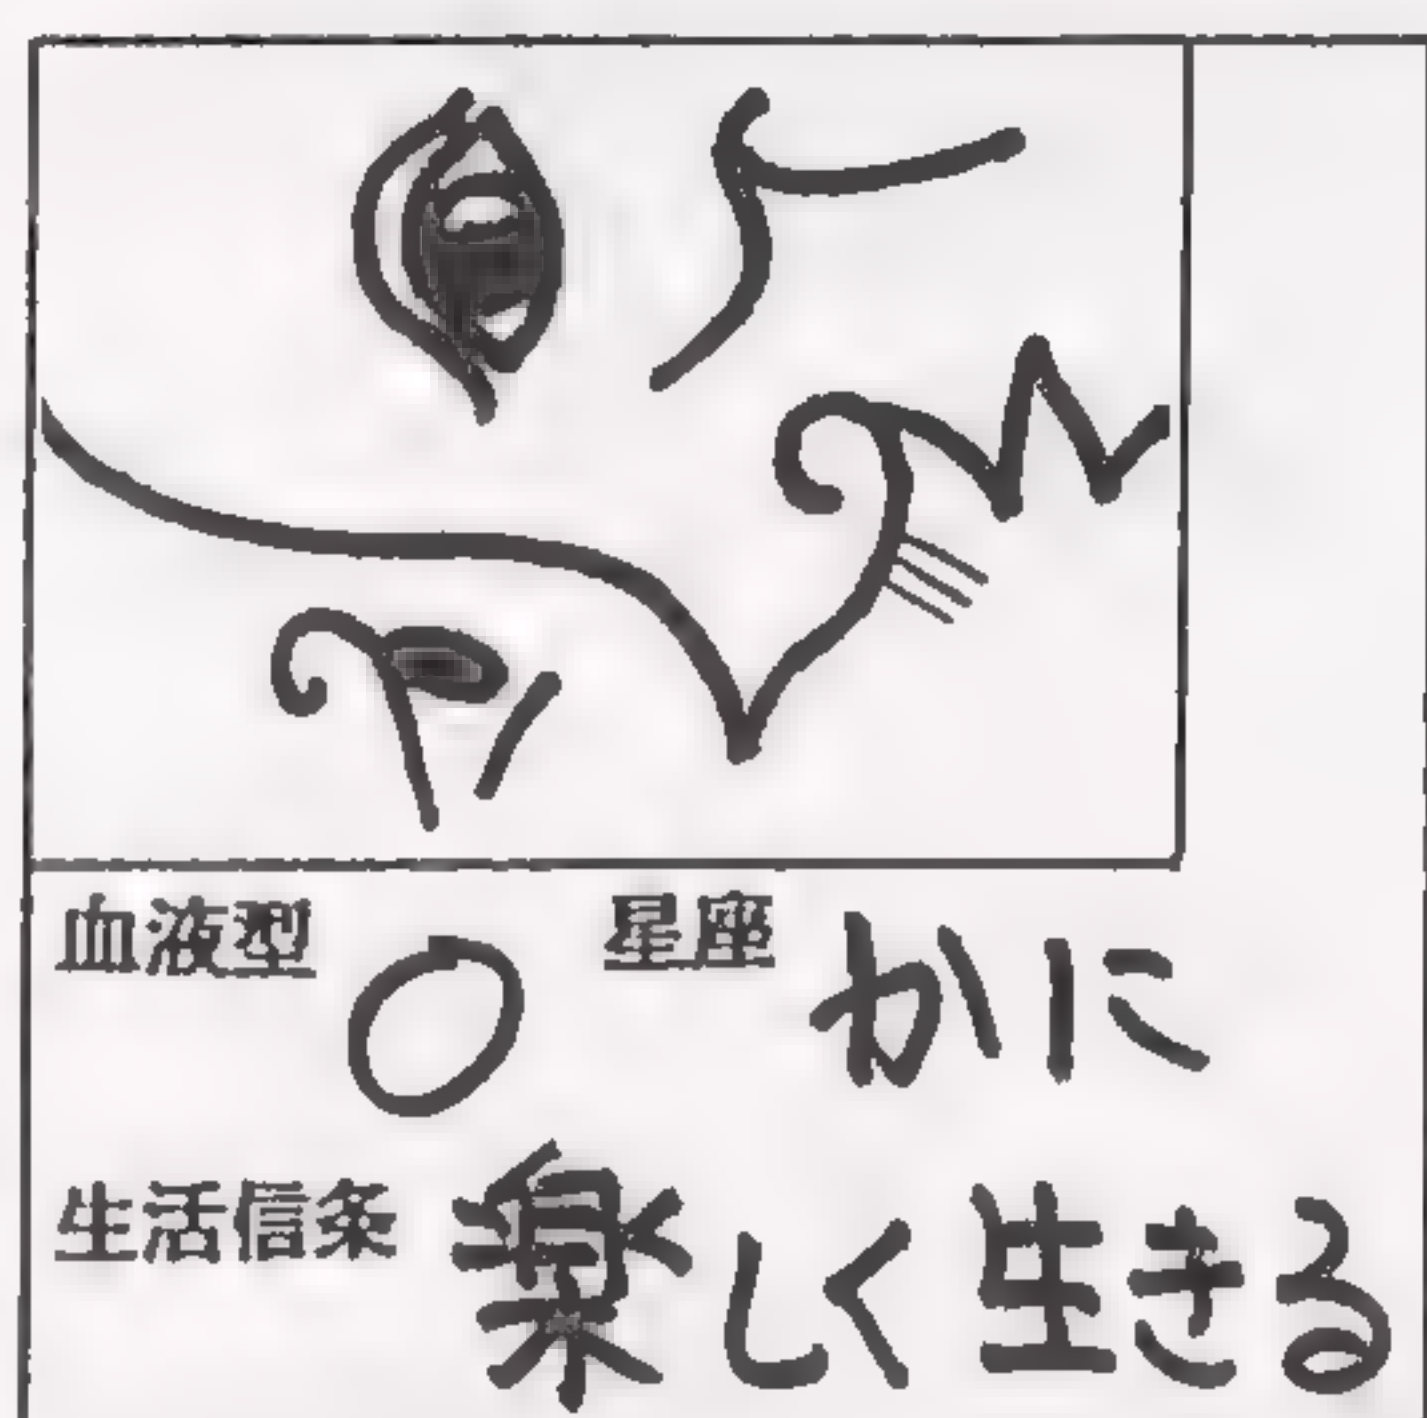 血液型 O 星座 かに
生活信条 楽しく生きる